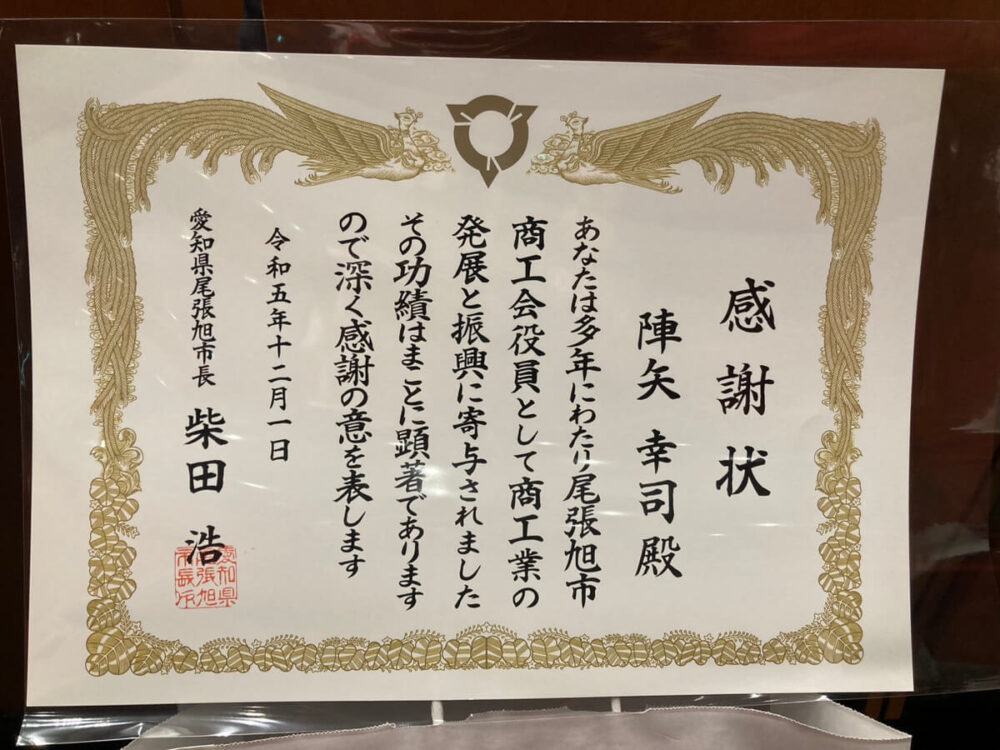 感謝状
陣矢 幸司 殿
あなたは多年にわたり尾張旭市
商工会役員として商工業の
発展と振興に寄与されました
その功績はまことに顕著であります
ので深く感謝の意を表します
令和五年十二月一日
愛知県尾張旭市長 柴田 浩
愛知県
尾張旭
市長印